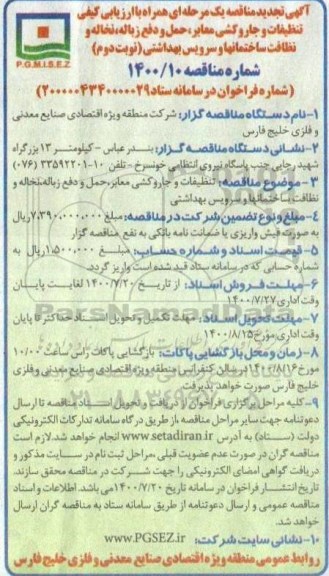 آگهی تجدید مناقصه یک مرحله‌ای همراه با ارزیابی کیفی
تنظیفات و جاروکشی معابر، حمل و دفع زباله، نخاله و
نظافت ساختمانها و سرویس بهداشتی (نوبت دوم)
P.G.M.I.S.E.Z
شماره مناقصه ۱۴۰۰/۱۰
(شماره فراخوان در سامانه ستاد ۲۰۰۰۰۰۴۳۴۰۰۰۰۰۲۹)
۱– نام دستگاه مناقصه گزار: شرکت منطقه ویژه اقتصادی صنایع معدنی
و فلزی خلیج فارس
۲– نشانی دستگاه مناقصه گزار: بندرعباس - کیلومتر ۱۳ بزرگراه
شهید رجایی جنب پاسگاه نیروی انتظامی خونسرخ - تلفن ۱۰-۳۳۵۹۲۲۰۱ (۰۷۶)
۳– موضوع مناقصه: تنظیفات و جاروکشی معابر، حمل و دفع زباله، نخاله و
نظافت ساختمانها و سرویس بهداشتی
۴– مبلغ و نوع تضمین شرکت در مناقصه: مبلغ ۷,۳۹۰,۰۰۰,۰۰۰ ریال
به صورت فیش واریزی یا ضمانت نامه بانکی به نفع مناقصه گزار
۵– قیمت اسناد و شماره حساب: مبلغ ۱,۵۰۰,۰۰۰ ریال به
شماره حسابی که در سامانه ستاد قید شده است واریز گردد.
۶– مهلت فروش اسناد: از تاریخ ۱۴۰۰/۷/۲۰ لغایت پایان
وقت اداری ۱۴۰۰/۷/۲۷
۷– مهلت تحویل اسناد: مهلت تکمیل و تحویل اسناد حداکثر تا پایان
وقت اداری مورخ ۱۴۰۰/۸/۱۵
۸– زمان و محل بازگشایی پاکات: بازگشایی پاکات راس ساعت ۱۰/۰۰
مورخ ۱۴۰۰/۸/۱۶ در سالن کنفرانس منطقه ویژه اقتصادی صنایع معدنی و فلزی
خلیج فارس صورت خواهد پذیرفت.
۹– کلیه مراحل برگزاری فراخوان از دریافت و تحویل اسناد مناقصه تا ارسال
دعوتنامه جهت سایر مراحل مناقصه، از طریق درگاه سامانه تدارکات الکترونیکی
دولت (ستاد) به آدرس www.setadiran.ir انجام خواهد شد. لازم است
مناقصه گران در صورت عدم عضویت قبلی، مراحل ثبت نام در سایت مذکور و
دریافت گواهی امضای الکترونیکی را جهت شرکت در مناقصه محقق سازند.
تاریخ انتشار فراخوان در سامانه تاریخ ۱۴۰۰/۷/۲۰ می باشد. اطلاعات و اسناد
مناقصه عمومی و ارسال دعوتنامه از طریق سامانه ستاد به مناقصه گران ارسال
خواهد شد.
۱۰– نشانی سایت شرکت: www.PGSEZ.ir
روابط عمومی منطقه ویژه اقتصادی صنایع معدنی و فلزی خلیج فارس